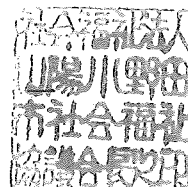 社会福祉法人
山陽小野田
市社会福祉
協議会長印